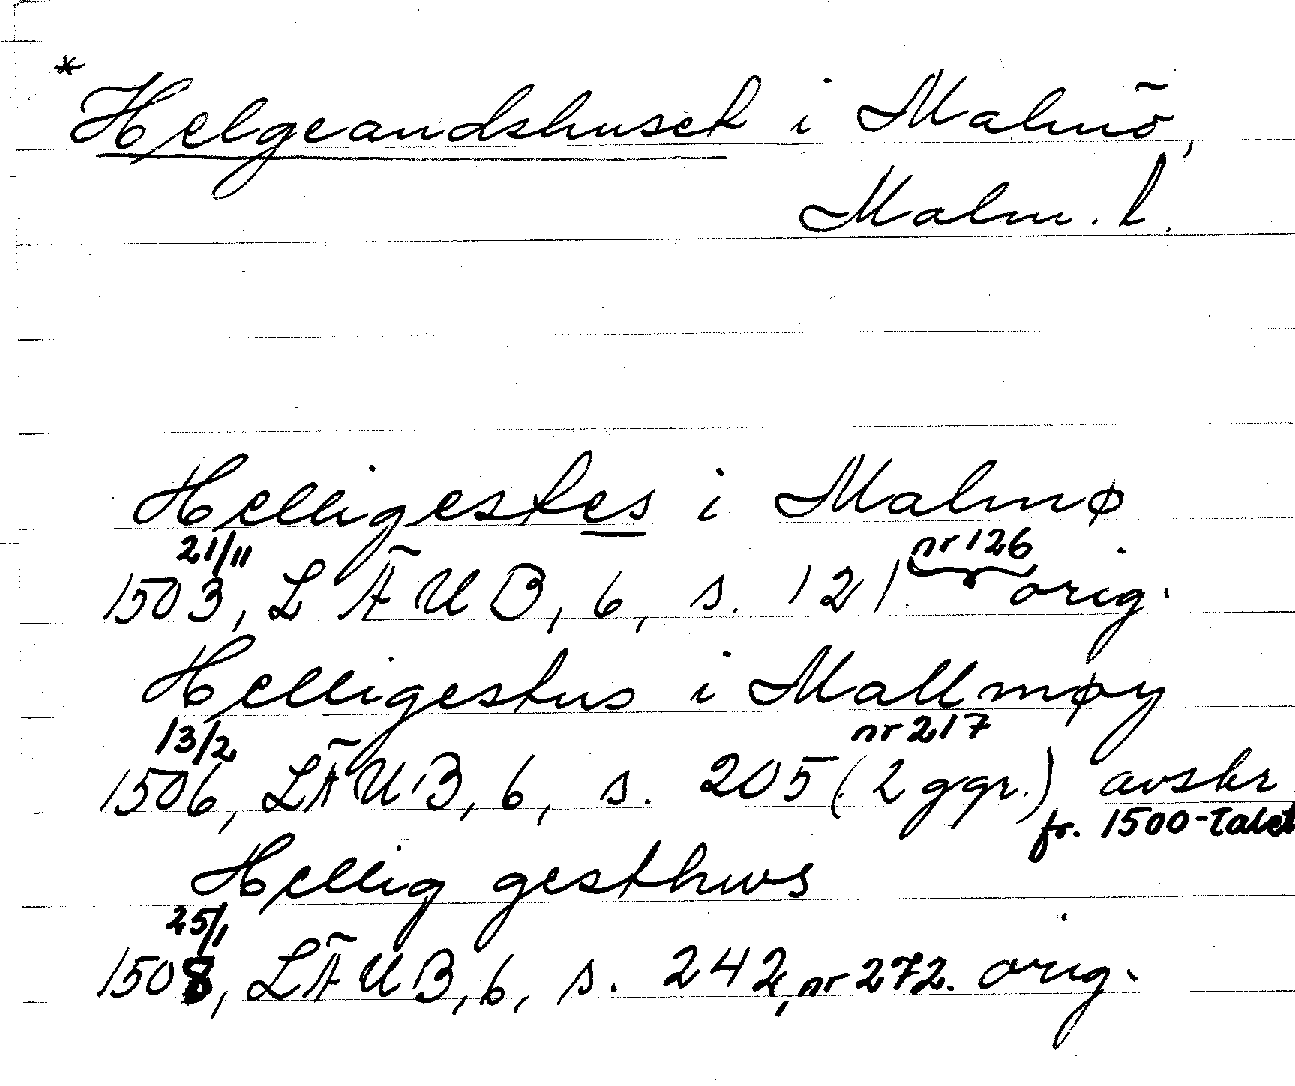 * Helgeandshuset i Malmö,
Malm. l.
Helligestes i Malmø
21/11 nr 126
1503, LÄUB, 6, s. 121 orig.
Helligestus i Mallmøy
13/2 nr 217
1506, LÄUB, 6, s. 205 (2 ggr.) avskr
fr. 1500-talet
Hellig gesthws
25/1
1508, LÄUB, 6, s. 242, nr 272. orig.